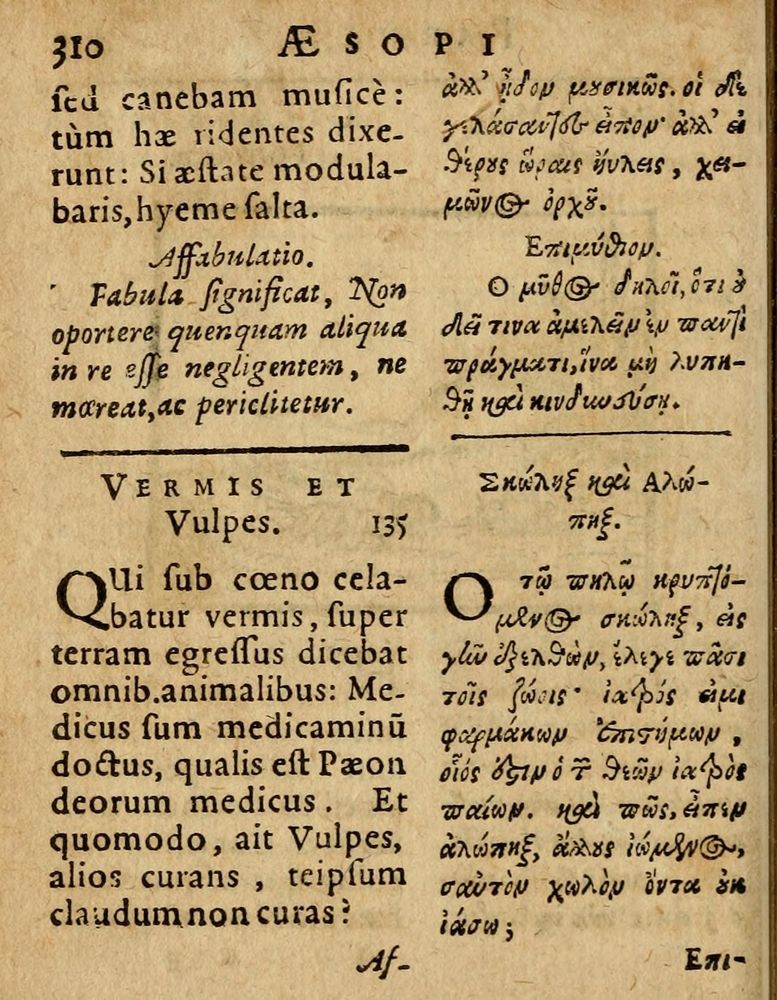 310 ÆSOPI
sed canebam musicè:
tùm hæ ridentes dixe-
runt: Si æstate modula-
baris, hyeme salta.
Affabulatio.
Fabula significat, Non
oportere quenquam aliqua
in re esse negligentem, ne
mœreat, ac periclitetur.
VERMIS ET
Vulpes. 135
QUi sub cœno cela-
batur vermis, super
terram egressus dicebat
omnib. animalibus: Me-
dicus sum medicaminũ
doctus, qualis est Pæon
deorum medicus. Et
quomodo, ait Vulpes,
alios curans, teipsum
claudum non curas?
Af-
ἀλλ' ᾖδον μουσικῶς. οἱ δὲ
γελάσαντες εἶπον· ἀλλ' εἰ
θέρους ὥραις ηὔλεις, χει-
μῶνος ὀρχοῦ.
Επιμύθιον.
Ο μῦθος δηλοῖ, ὅτι οὐ
δεῖ τινα ἀμελεῖν ἐν παντὶ
πράγματι, ἵνα μὴ λυπη-
θῇ καὶ κινδυνεύσῃ.
Σκώληξ καὶ Αλώ-
πηξ.
Ο τῷ πηλῷ κρυπτό-
μενος σκώληξ, εἰς
γῆν ἐξελθὼν, ἔλεγε πᾶσι
τοῖς ζώοις· ἰατρός εἰμι
φαρμάκων ἐπιστήμων,
οἷός ἐστιν ὁ τῶν θεῶν ἰατρὸς
παίων. καὶ πῶς, εἶπεν
ἀλώπηξ, ἄλλους ἰώμενος,
σαυτὸν χωλὸν ὄντα οὐκ
ἰάσω;
Επι-